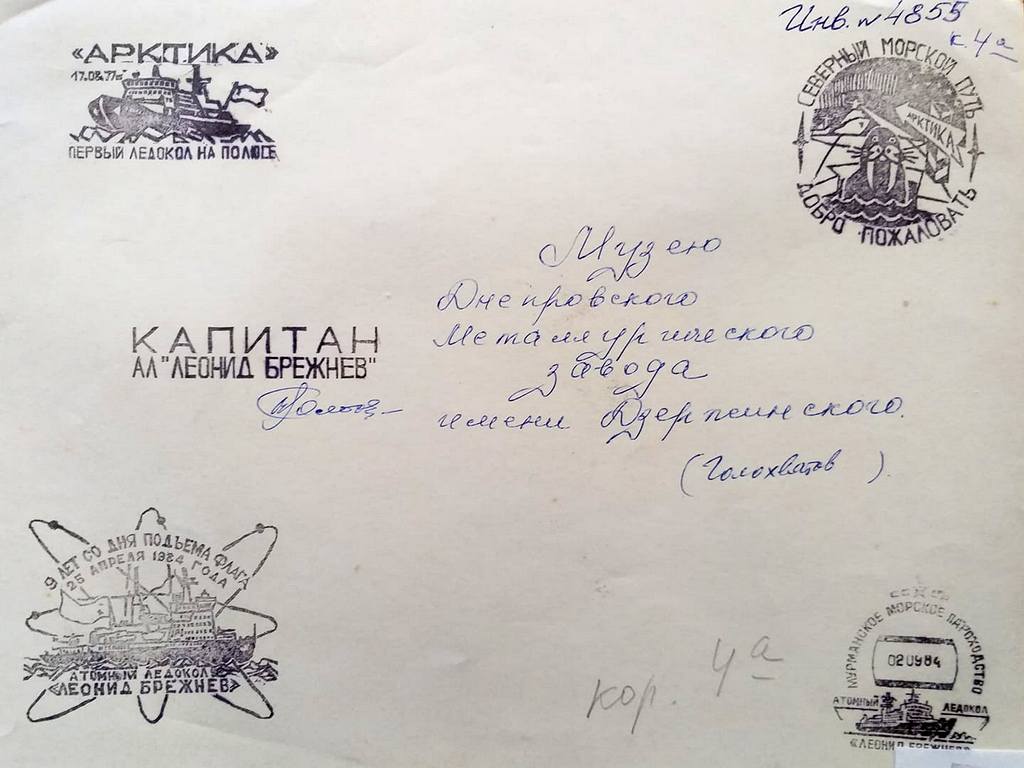 Инв. № 4855
к. 4а
«АРКТИКА»
17.08.77г
ПЕРВЫЙ ЛЕДОКОЛ НА ПОЛЮСЕ
СЕВЕРНЫЙ МОРСКОЙ ПУТЬ
АРКТИКА
ДОБРО ПОЖАЛОВАТЬ
Музею
Днепровского
Металлургического
завода
имени Дзержинского.
(Голохватов).
КАПИТАН
АЛ "ЛЕОНИД БРЕЖНЕВ"
9 ЛЕТ СО ДНЯ ПОДЪЕМА ФЛАГА
25 АПРЕЛЯ 1984 ГОДА
АТОМНЫЙ ЛЕДОКОЛ
«ЛЕОНИД БРЕЖНЕВ»
кор. 4а
МУРМАНСКОЕ МОРСКОЕ ПАРОХОДСТВО
020984
АТОМНЫЙ ЛЕДОКОЛ
«ЛЕОНИД БРЕЖНЕВ»